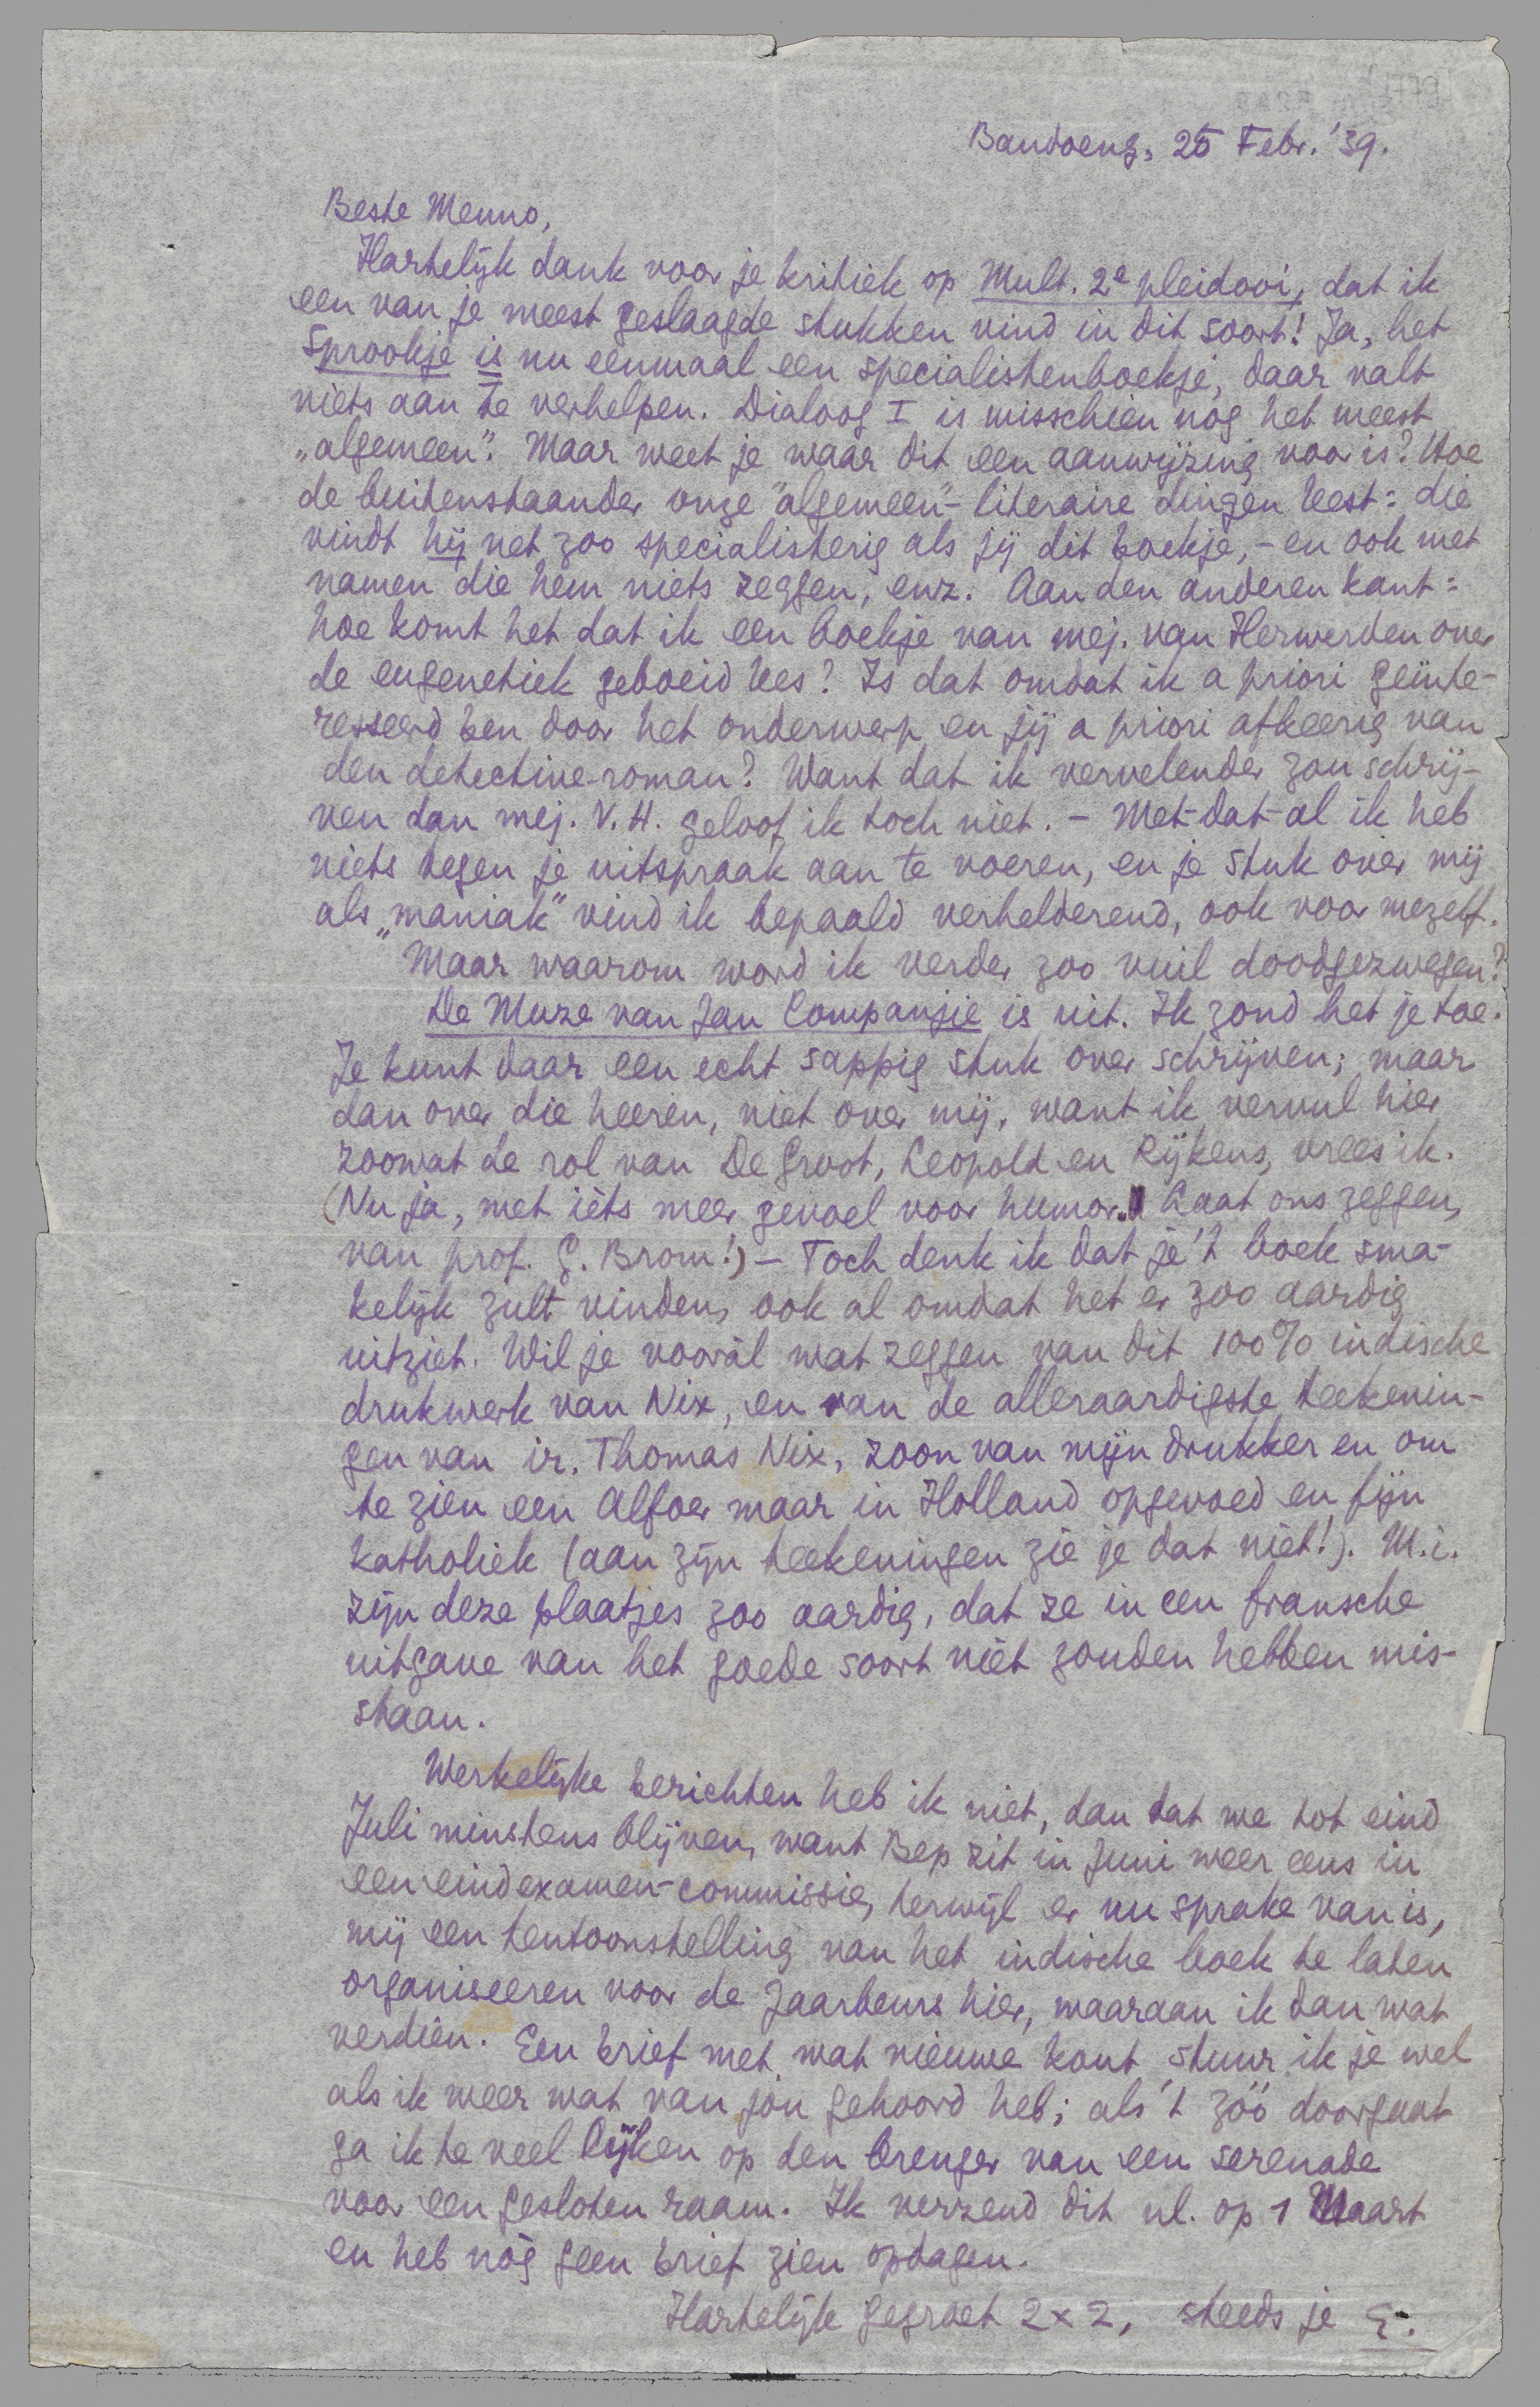 Bandoeng, 25 Febr. '39.
Beste Menno,
Hartelijk dank voor je kritiek op Mult. 2e pleidooi, dat ik
een van je meest geslaagde stukken vind in dit soort! Ja, het
Sprookje is nu eenmaal een specialistenboekje, daar valt
niets aan te verhelpen. Dialoog I is misschien nog het meest
„algemeen”. Maar weet je waar dit een aanwijzing voor is? Hoe
de buitenstaander onze "algemeen"-literaire dingen leest: die
vindt hij net zoo specialisterig als jij dit boekje, - en ook met
namen die hem niets zeggen, enz. Aan den anderen kant:
hoe komt het dat ik een boekje van mej. van Herwerden over
de eugenetiek geboeid lees? Is dat omdat ik a priori geïnte-
resseerd ben door het onderwerp en jij a priori afkeerig van
den detective-roman? Want dat ik vervelender zou schrij-
ven dan mej. V. H. geloof ik toch niet. - Met-dat-al ik heb
niets tegen je uitspraak aan te voeren, en je stuk over mij
als „maniak” vind ik bepaald verhelderend, ook voor mezelf.
Maar waarom word ik verder zoo vuil doodgezwegen?
De Muze van Jan Companjie is uit. Ik zond het je toe.
Je kunt daar een echt sappig stuk over schrijven; maar
dan over die heeren, niet over mij, want ik vervul hier
zoowat de rol van De Groot, Leopold en Rijkens, vrees ik.
(Nu ja, met ièts meer gevoel voor humor. Laat ons zeggen,
van prof. G. Brom!) - Toch denk ik dat je 't boek sma-
kelijk zult vinden, ook al omdat het er zoo aardig
uitziet. Wil je vooràl wat zeggen van dit 100% indische
drukwerk van Nix, en van de alleraardigste teekenin-
gen van ir. Thomas Nix, zoon van mijn drukker en om
te zien een Alfoer maar in Holland opgevoed en fijn
katholiek (aan zijn teekeningen zie je dat niét!). M.i.
zijn deze plaatjes zoo aardig, dat ze in een fransche
uitgave van het goede soort niét zouden hebben mis-
staan.
Werkelijke berichten heb ik niet, dan dat we tot eind
Juli minstens blijven, want Bep zit in Juni weer eens in
een eindexamen-commissie, terwijl er nu sprake van is,
mij een tentoonstelling van het indische boek te laten
organiseeren voor de Jaarbeurs hier, waaraan ik dan wat
verdien. Een brief met wat nieuwe kout stuur ik je wel
als ik weer wat van jòu gehoord heb; als 't zóó doorgaat
ga ik te veel lijken op den brenger van een serenade
voor een gesloten raam. Ik verzend dit nl. op 1 Maart
en heb nòg geen brief zien opdagen.
Hartelijk gegroet 2 x 2, steeds je E.